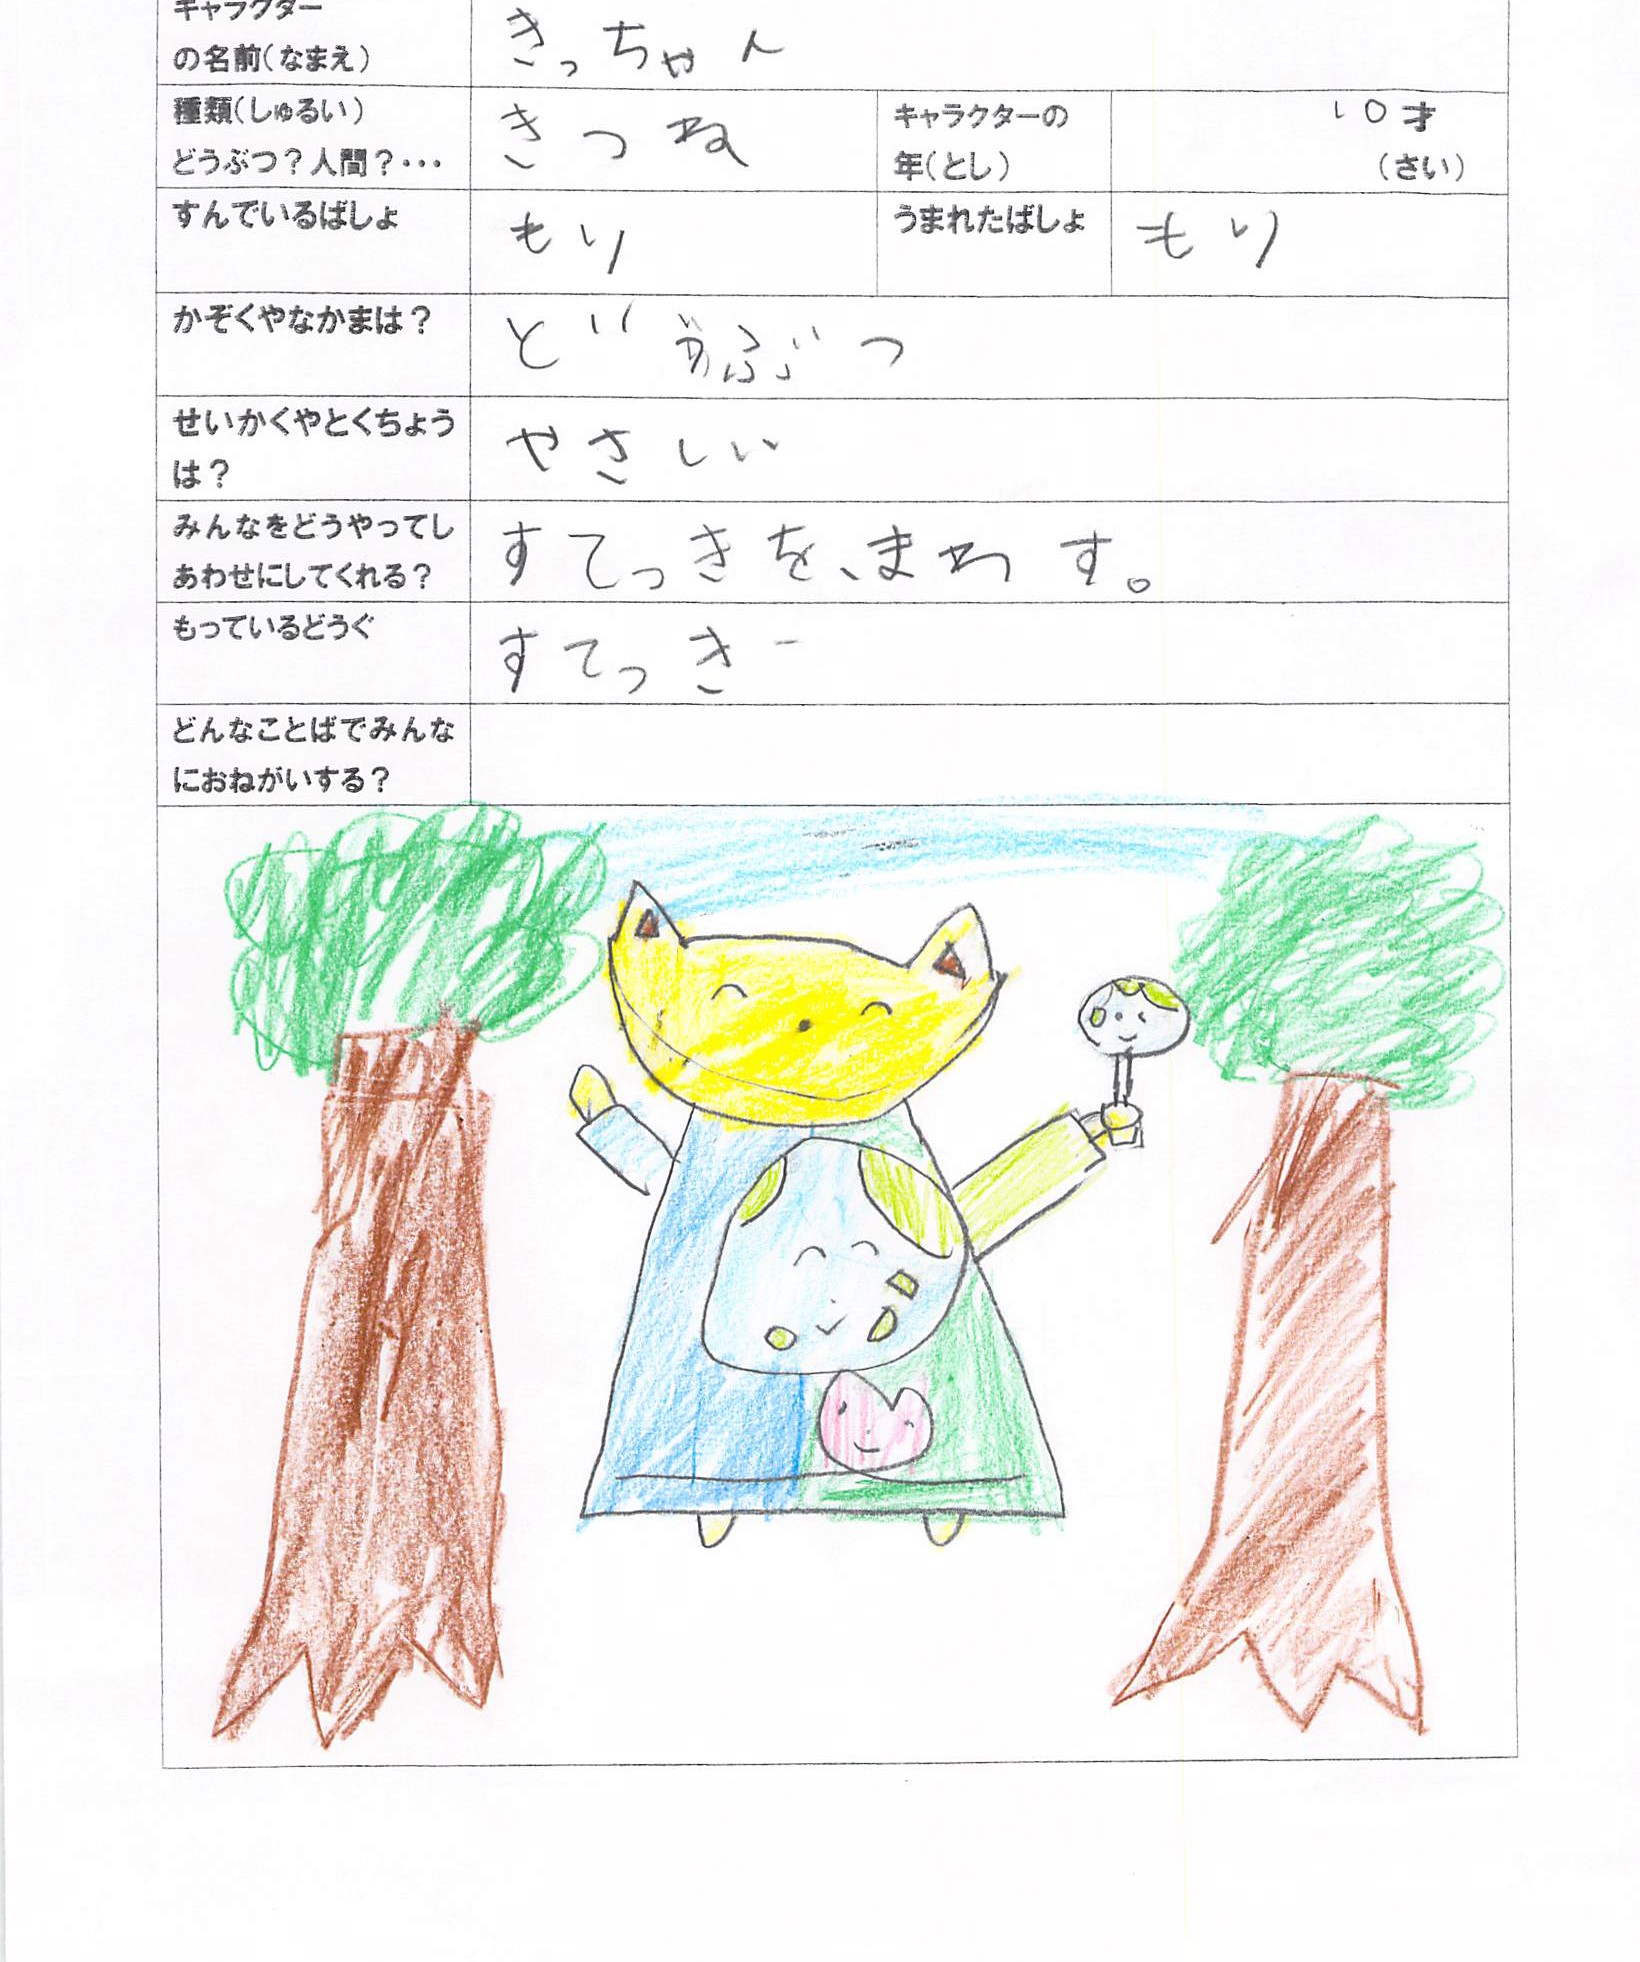 キャラクター
の名前(なまえ)
きっちゃん
種類(しゅるい)
どうぶつ?人間?・・・
きつね
キャラクターの
年(とし)
10才
(さい)
すんでいるばしょ
もり
うまれたばしょ
もり
かぞくやなかまは?
どうぶつ
せいかくやとくちょう
は?
やさしい
みんなをどうやってし
あわせにしてくれる?
すてっきを、まわす。
もっているどうぐ
すてっきー
どんなことばでみんな
におねがいする?